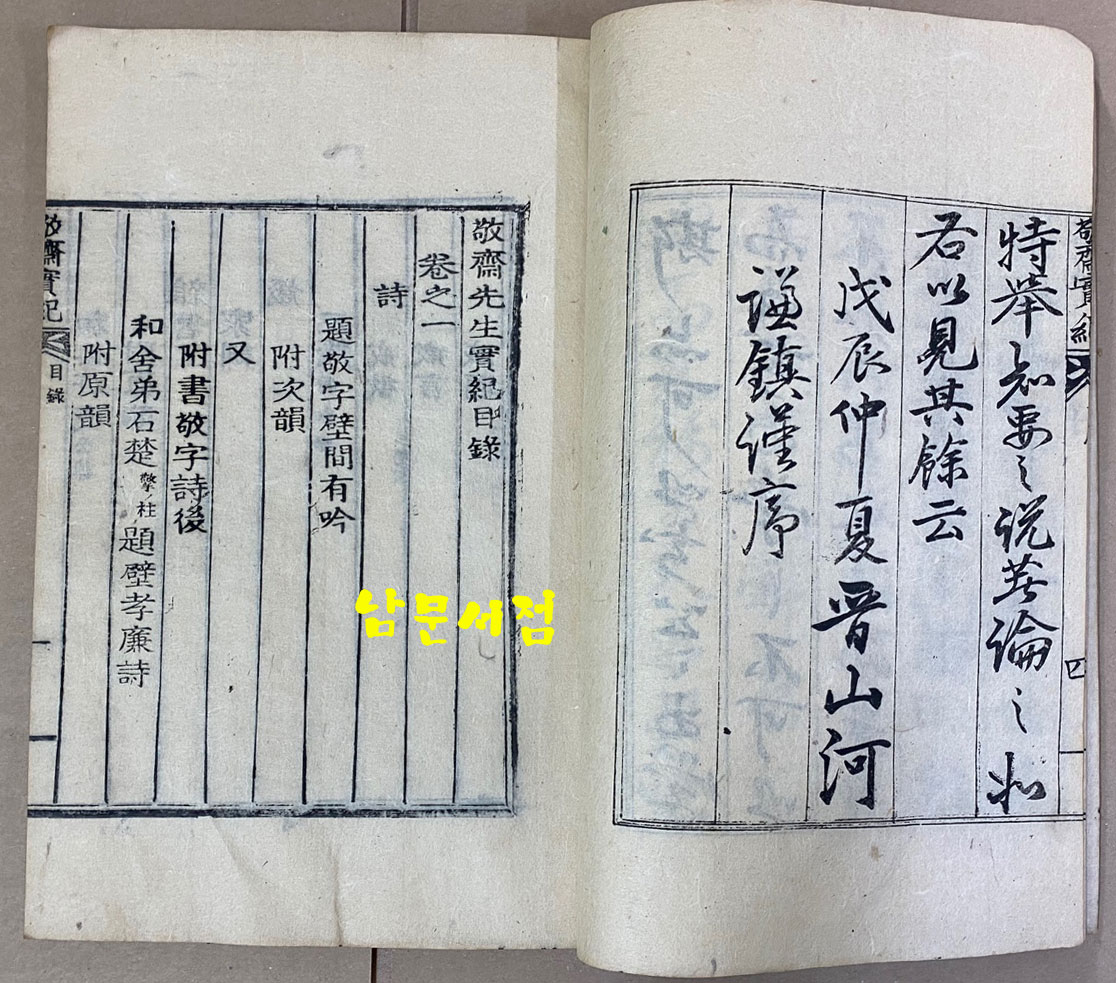 特舉知要之說芸論之如
右以見其餘云
戊辰仲夏晋山河
謙鎭謹序
敬齋實紀
四
敬齋先生實紀目錄
卷之一
詩
題敬字壁間有吟
附次韻
又
附書敬字詩後
和舍弟石楚擎柱題壁孝廉詩
附原韻
敬齋實紀
目錄
一
남문서점